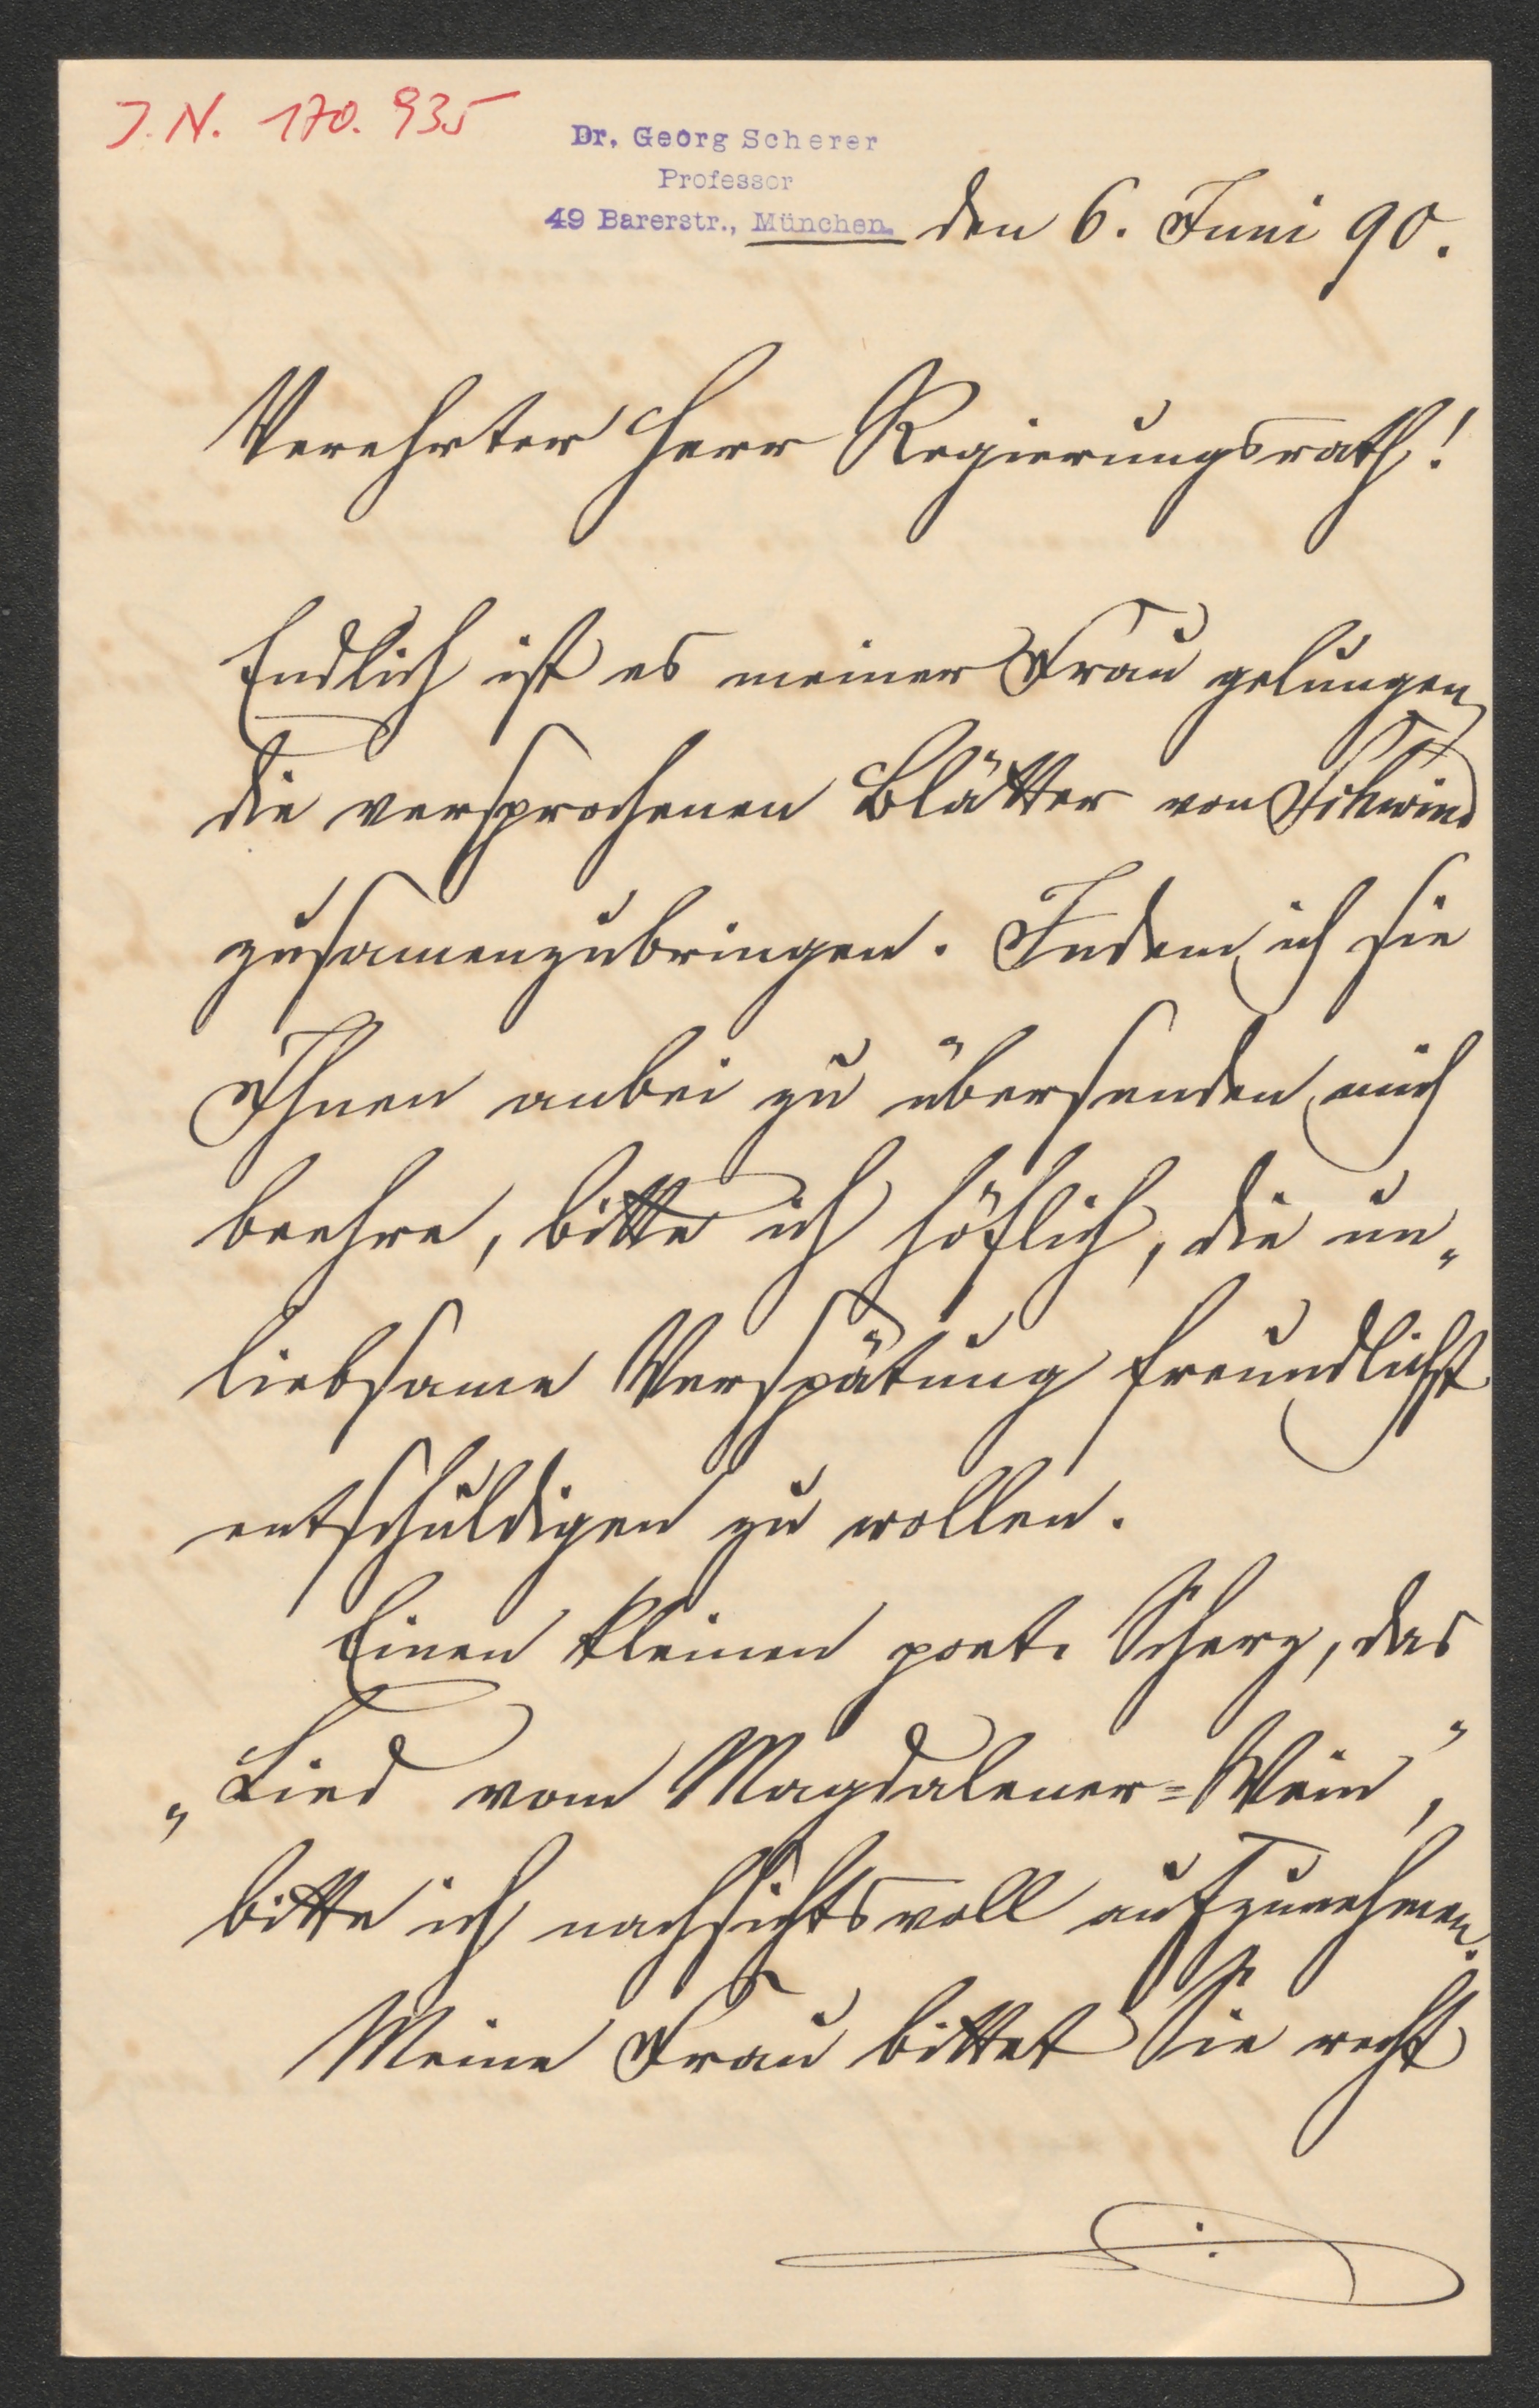 J.N. 170.935
Dr. Georg Scherer
Professor
49 Barerstr., München. den 6. Juni 90.
Verehrter Herr Regierungsrath!
Endlich ist es meiner Frau gelungen
die versprochenen Blätter von Schwind
zusamenzubringen. Indem ich sie
Ihnen anbei zu übersenden mich
beehre, bitte ich höflich, die un„
liebsame Verspätung freundlichst
entschuldigen zu wollen.
Einen kleinen poet. Scherz, das
„Lied vom Magdalener=Wein",
bitte ich nachsichtsvoll aufzunehmen.
Meine Frau bittet Sie recht